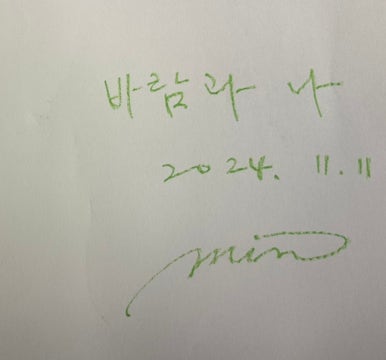 바람과 나
2024. 11. 11
min